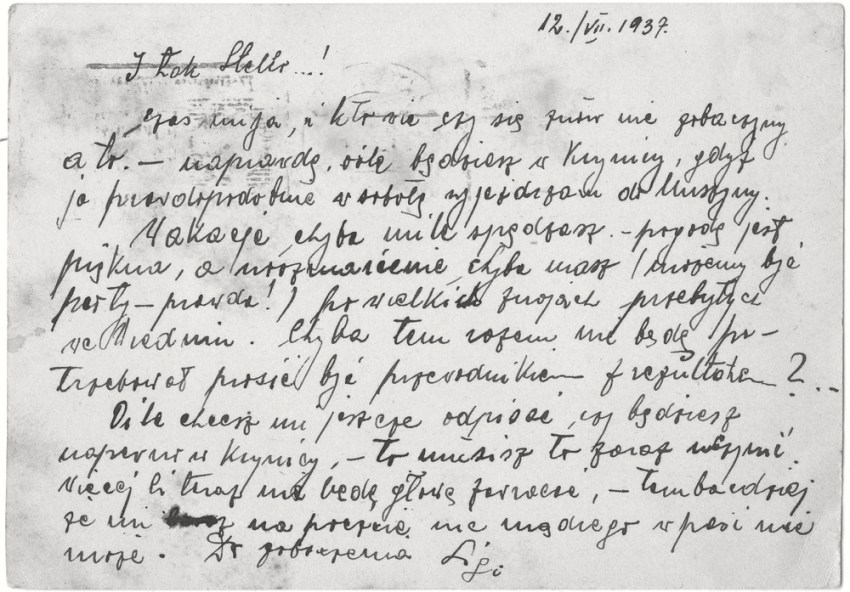 12./VII. 1937.
I tak Stello...!
Czas mija, i kto wie czy się znów nie zobaczymy
a to. – naprawdę, o ile będziesz w Krynicy, gdyż
ja prawdopodobnie w sobotę wyjeżdżam do Muszyny.
Wakacje chyba mile spędzasz. – pogodę jest
piękna, a urozmaicenie chyba masz (możemy być
perty – prawda!) po wielkich znojach przebytych
we Wiedniu. Chyba tem razem nie będę po-
trzebował prosić być przewodnikiem z rezultatem ?..
O ile chcesz mi jeszcze odpisać, czy będziesz
napewno w Krynicy, – to musisz to zaraz uczynić.
Więcej Ci teraz nie będę głowę zawracać, – tembardziej
że mi na poczcie nic mądrego w paść nie
może. Do zobaczenia